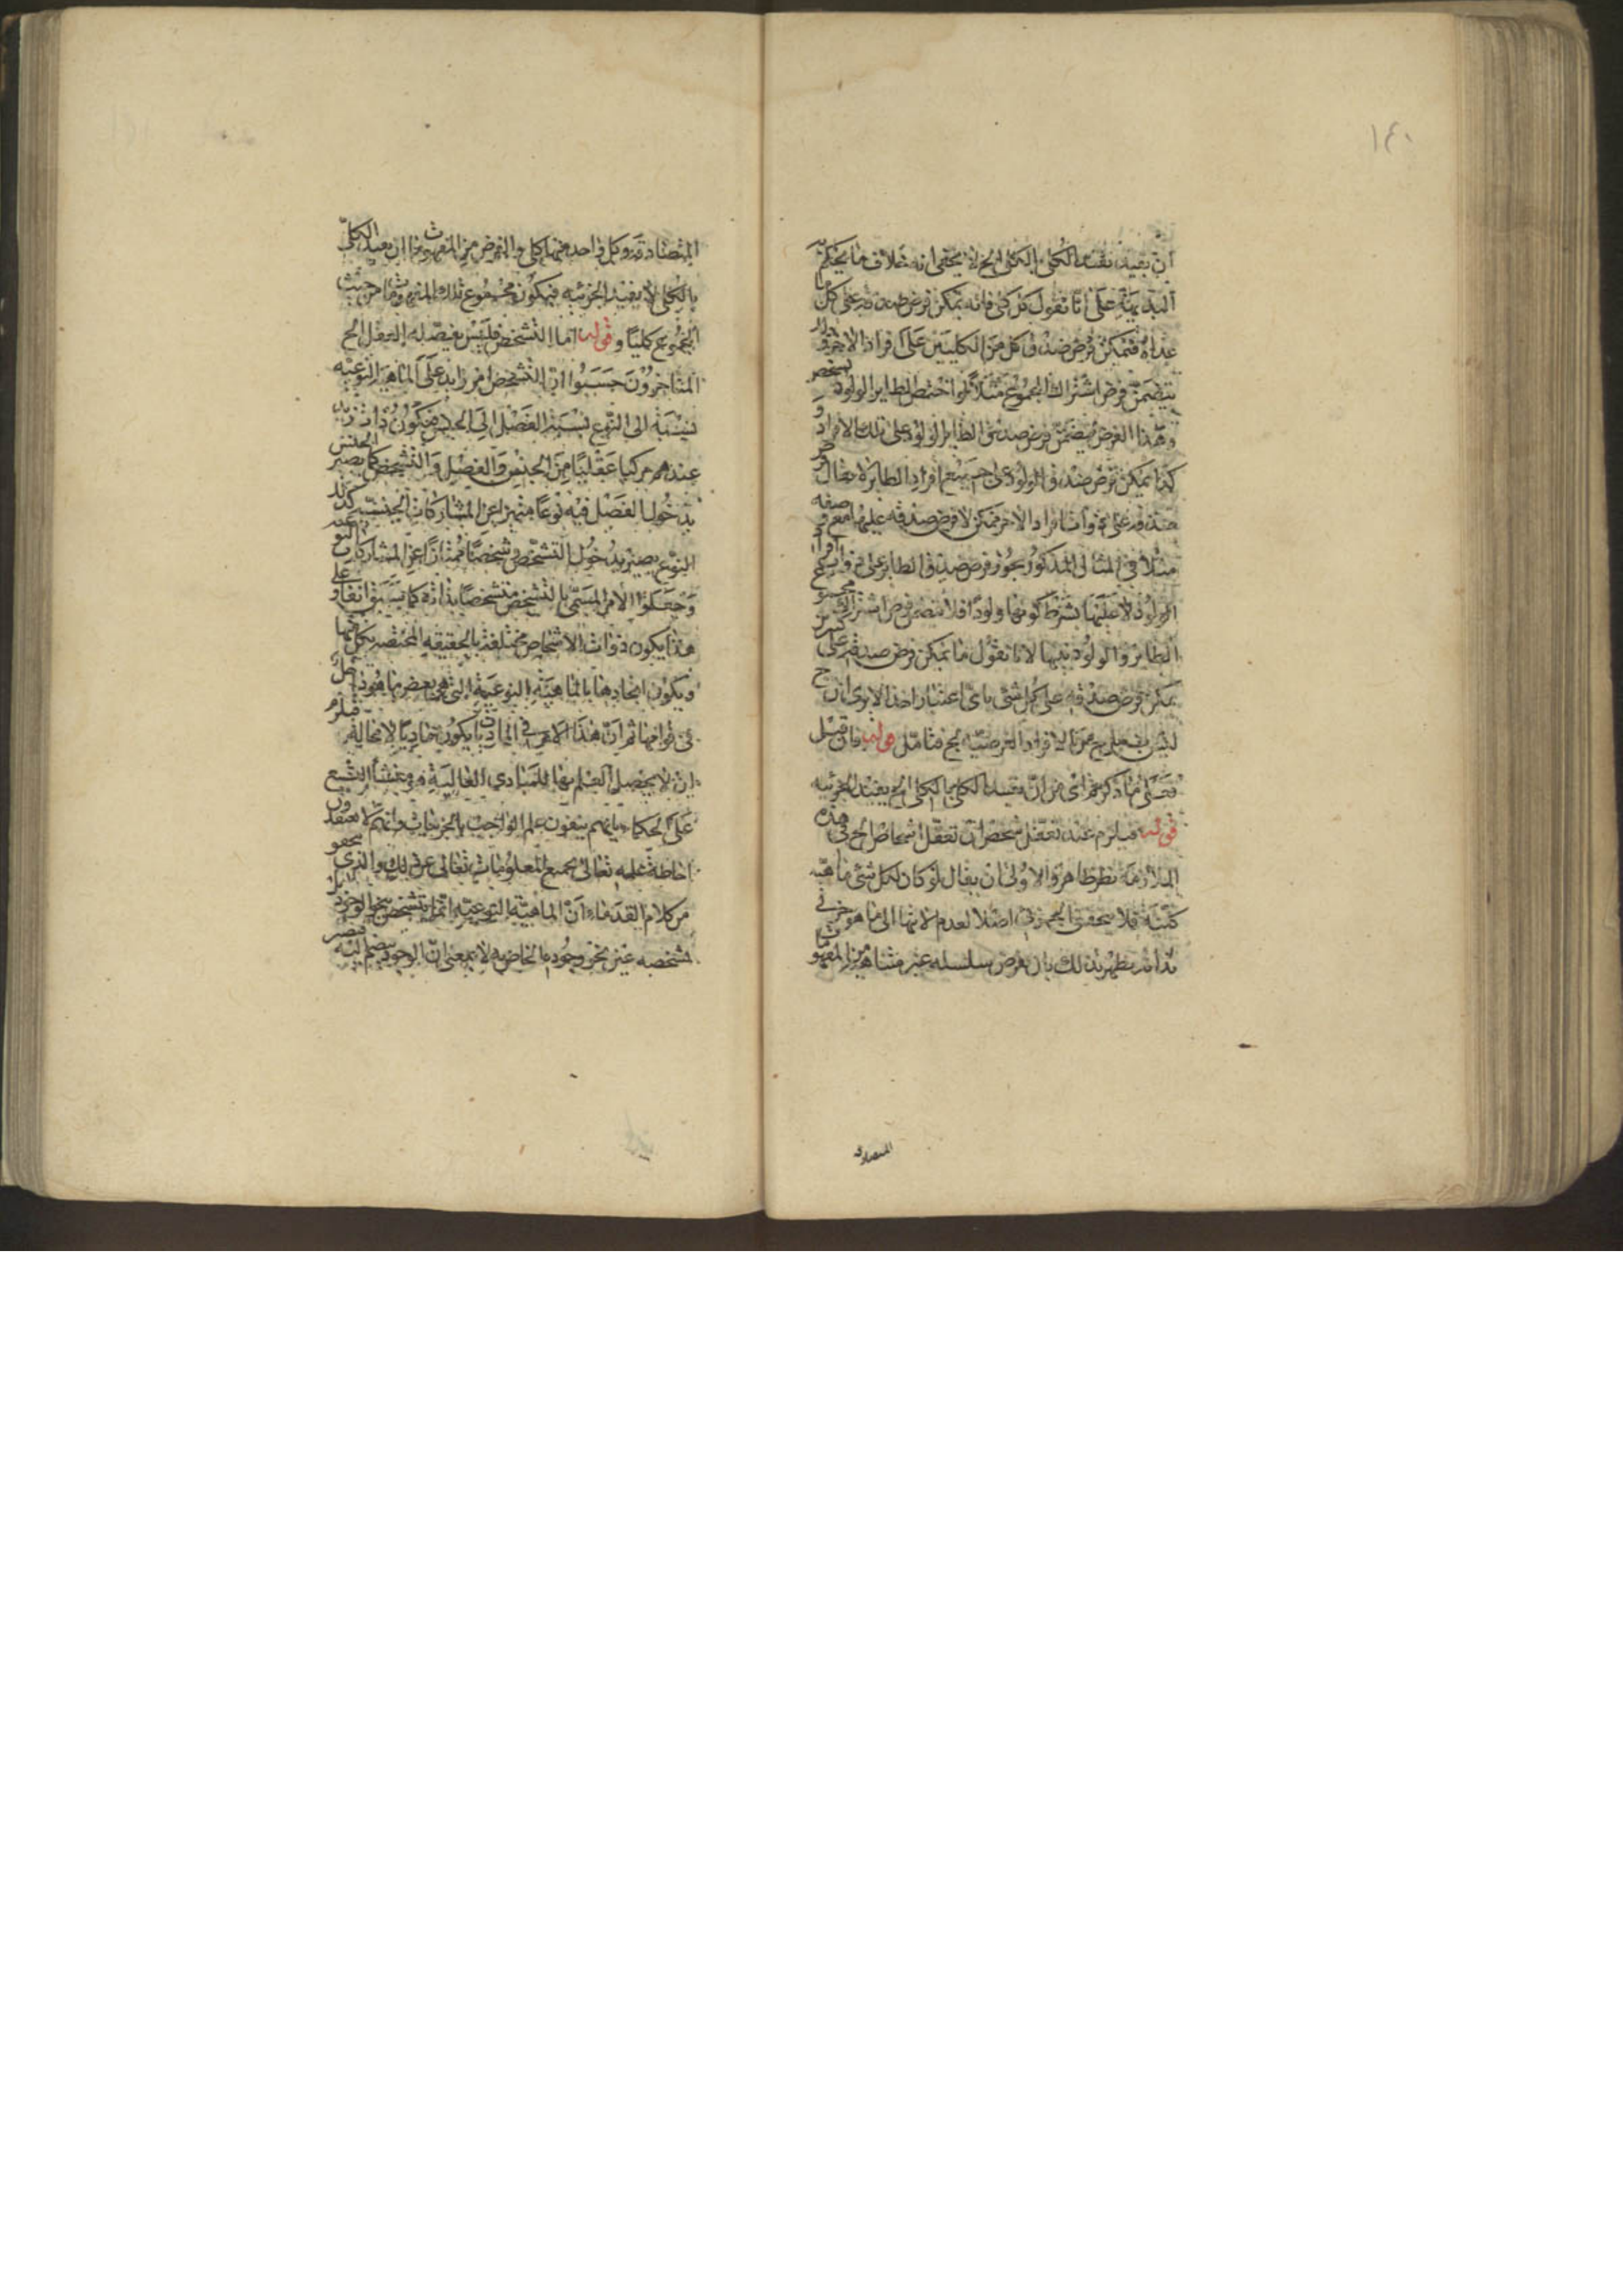 ١٤٠
ان يفيد تقييد الكلي بالكلي الخ لا يخفى انه خلاف ما يحكم به
البديهة على انا نقول كل كلي فانه يمكن فرض صدقه على كل ما
عداه فيمكن فرض صدق كل من الكليين على افراد الاخر وذلك
يتضمن فرض اشتراك المجموع مثلا لو اختص الطاير الولود بشخص
وهذا الفرض يتضمن فرض صدق الطاير الولود على تلك الافراد و
كذا يمكن فرض صدق الولود على جميع افراد الطاير لا يقال
صدقه على افراد الاخر ممكن لا فرض صدقه عليها مع صفة
مثلا في المثال المذكور يجوز فرض صدق الطاير على افراد
الولود لا عليها بشرط كونها ولودا فلا يتضمن فرض اشتراك مجموع
الطاير والولود بينها لانا نقول ما يمكن فرض صدقه على كثيرين
يمكن فرض صدقه على كل شي باي اعتبار اخذ الا يرى ان ح
ليس يصلح من الافراد الفرضية الخ فتامل قوله فان قيل
فعلى ما ذكرتم اي من ان تقييد الكلي بالكلي الخ يفيد الجزئية
قوله فيلزم عند تعقل شخص ان تعقل اشخاص الخ في هذه
الملازمة نظر ظاهر والاولى ان يقال لو كان لكل شي ماهية
كلية فلا يتحقق الجزئي اصلا لعدم الانتهاء الى ما هو جزئي
بذاته يظهر ذلك بان يفرض سلسلة غير متناهية من المفهومات
المتصادقة
المتصادقة وكل واحد منها كلي والفرض من المفهومات ان تقييد الكلي
بالكلي لا يفيد الجزئية فيكون مجموع تلك المفهومات من حيث
المجموع كليا وقوله اما التشخص فليس يفصله العقل الخ
المتاخرون حسبوا ان التشخص امر زايد على الماهية النوعية
نسبته الى النوع نسبة الفصل الى الجنس فيكون ذات زيد
عندهم مركبا عقليا من الجنس والفصل والتشخص كما يصير الجنس
بدخول الفصل فيه نوعا متميزا عن المشاركات الجنسية كذلك
النوع يصير بدخول التشخص شخصا ممتازا عن المشاركات النوعية
وجعلوا الامر المسمى بالتشخص متشخصا بذاته كما سبق انفا و على
هذا يكون ذوات الاشخاص مختلفة بالحقيقة المختصة بكل منها
ويكون اتحادها بالماهية النوعية التي هي بعض ما هو داخل
في قوامها ثم ان هذا الامر في الماديات يكون ماديا لا محالة فيلزم
ان لا يحصل العلم بها للمبادي العالية وهو منشأ التشنيع
على الحكماء بانهم ينفون علم الواجب بالجزئيات وانهم لا يعتقدون
احاطة علمه تعالى بجميع المعلومات تعالى عن ذلك والذي يحقق
من كلام القدماء ان الماهية النوعية انما يتشخص بنحو الوجود
تشخصه عين نحو وجوده الخاص به لا بمعنى ان الوجود ينضم اليه فيصير